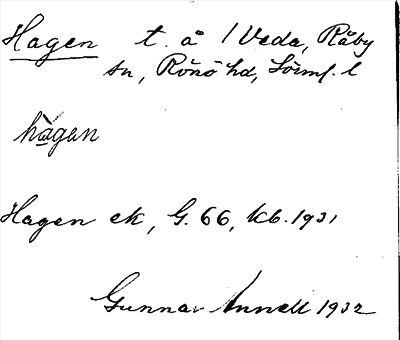 Hagen t. å 1 Veda, Råby
sn, Rönö hd, Sörml. l
hàgan
Hagen ek, G. 66, kb. 1931
Gunnar Annell 1932